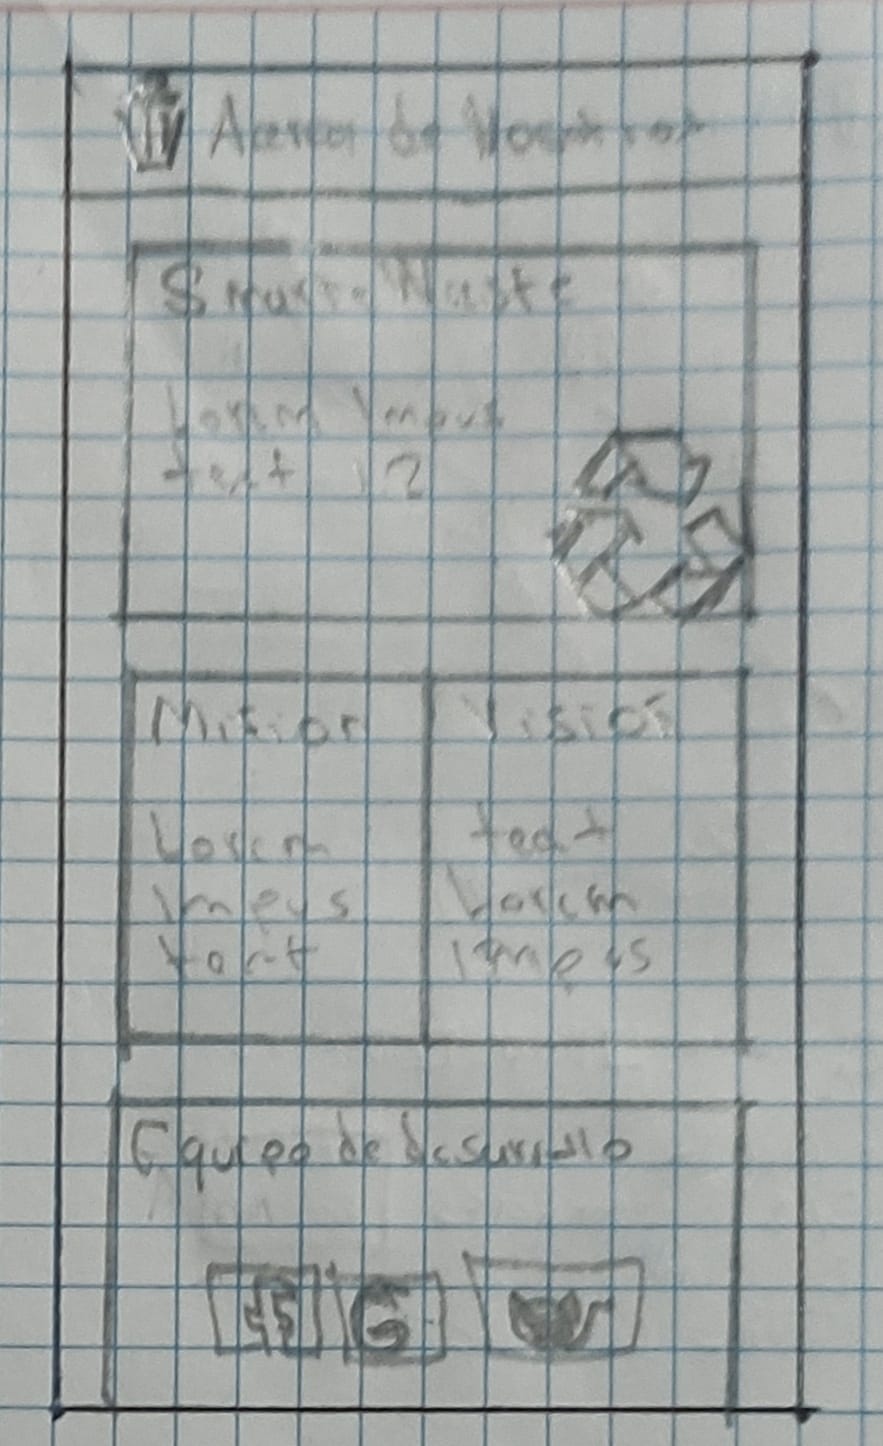 Acerca de Nosotros
Smart Waste
Lorem Imeus
text 12
Mision
Lorem
Imeys
text
Vision
text
Lorem
Imeys
Equipo de desarrollo